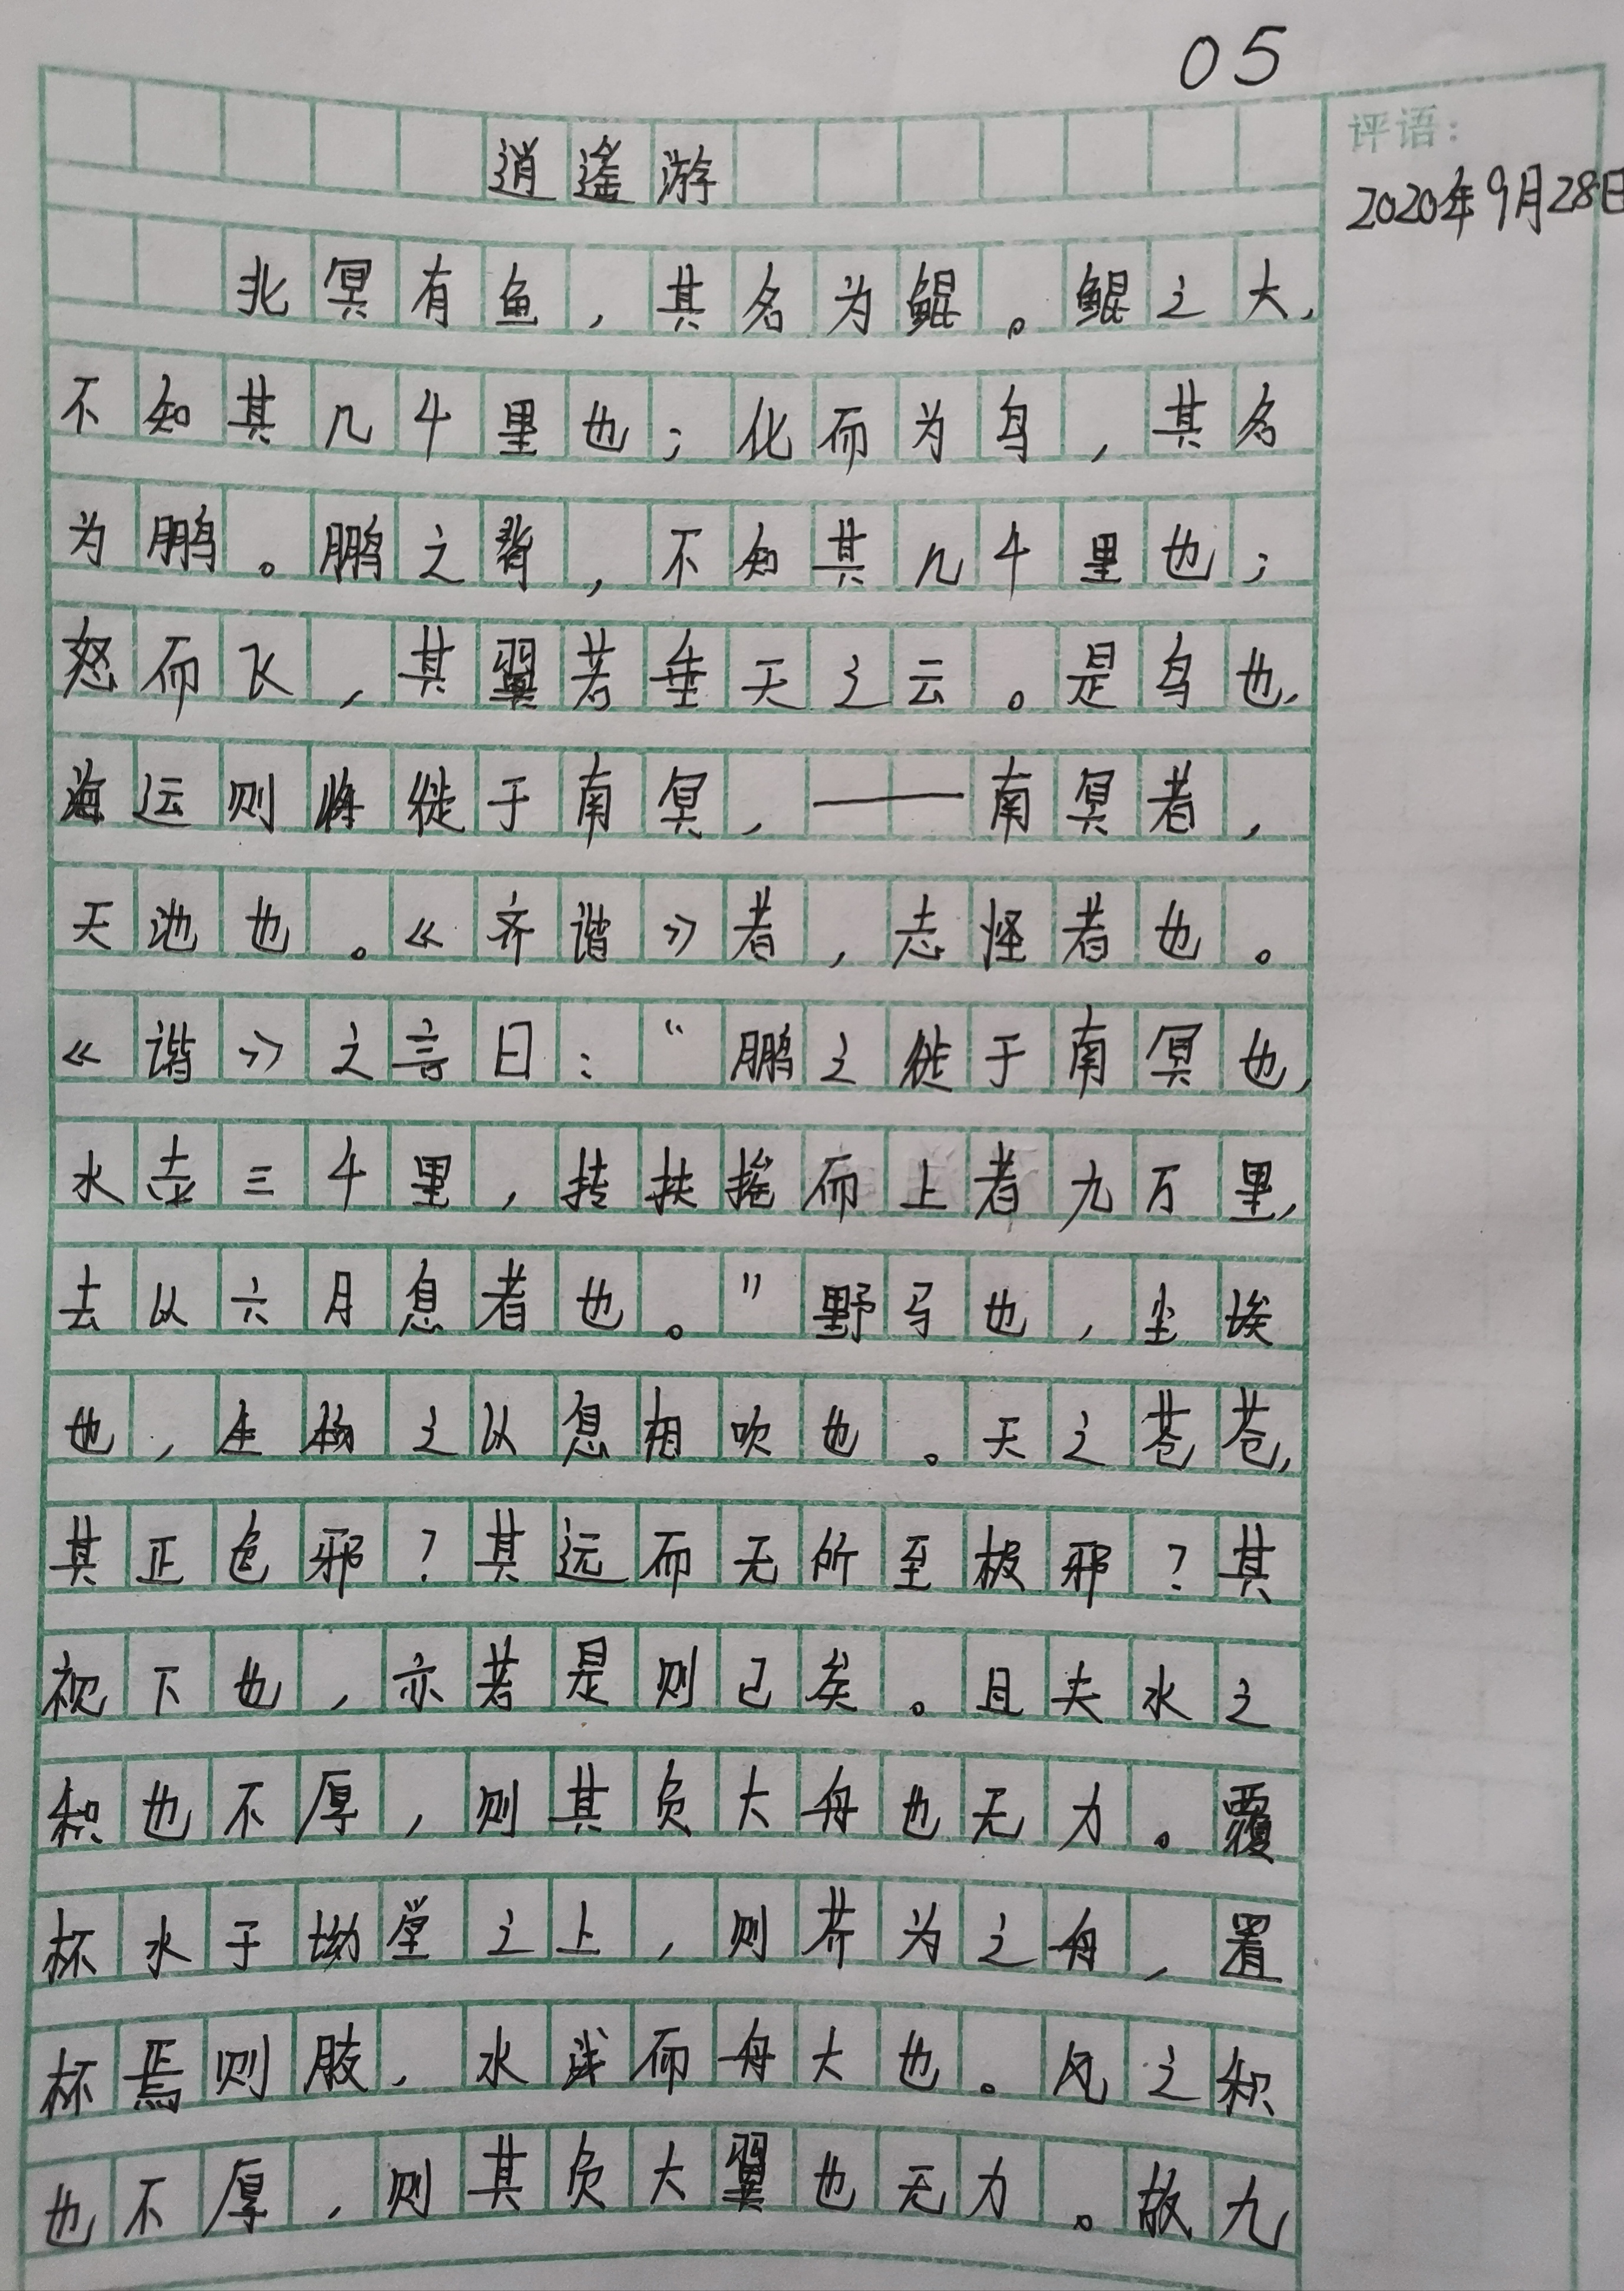 05
评语：
2020年9月28日
逍遥游
北冥有鱼，其名为鲲。鲲之大，
不知其几千里也；化而为鸟，其名
为鹏。鹏之背，不知其几千里也；
怒而飞，其翼若垂天之云。是鸟也，
海运则将徙于南冥，——南冥者，
天池也。《齐谐》者，志怪者也。
《谐》之言曰：“鹏之徙于南冥也，
水击三千里，抟扶摇而上者九万里，
去以六月息者也。”野马也，尘埃
也，生物之以息相吹也。天之苍苍，
其正色邪？其远而无所至极邪？其
视下也，亦若是则已矣。且夫水之
积也不厚，则其负大舟也无力。覆
杯水于坳堂之上，则芥为之舟，置
杯焉则胶，水浅而舟大也。风之积
也不厚，则其负大翼也无力。故九